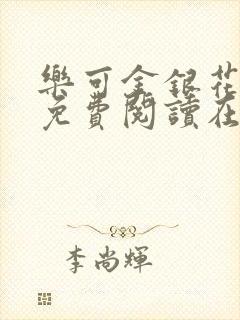 樂可金銀花
免費閱讀在
李尚輝